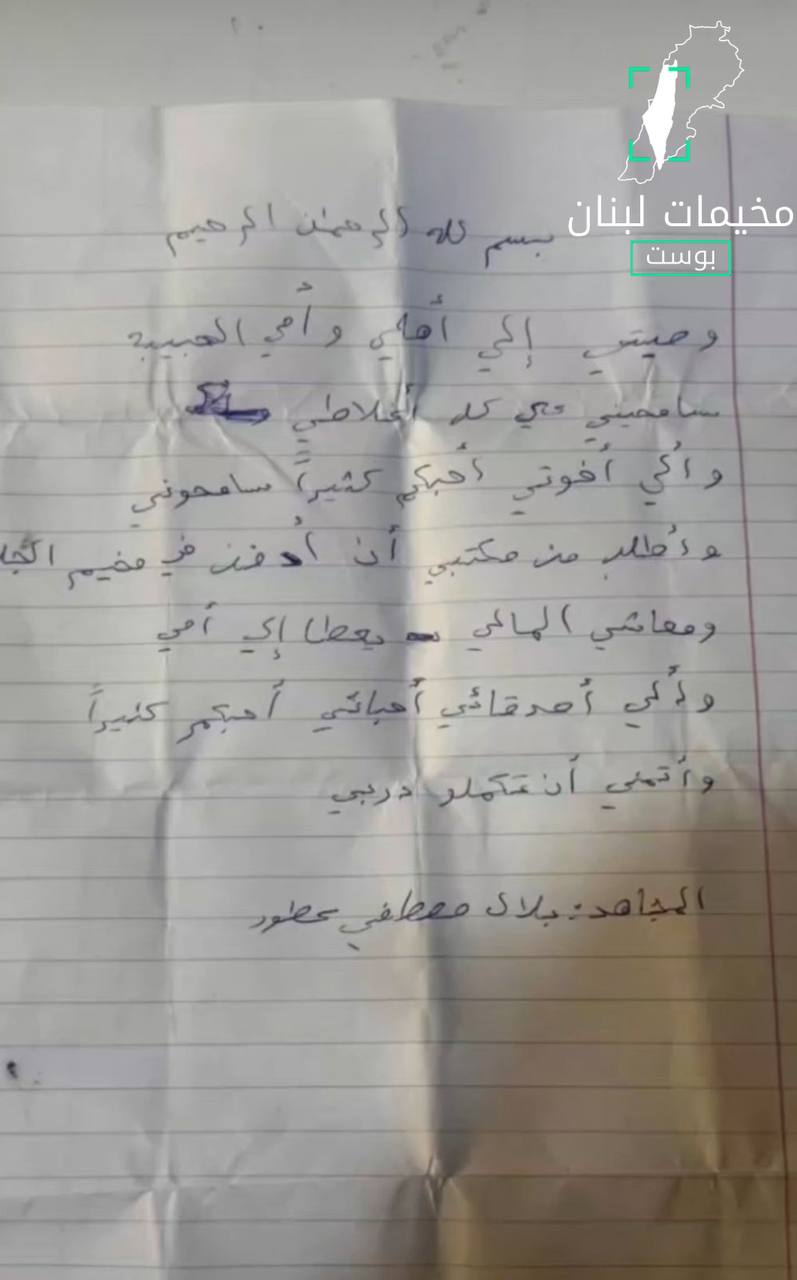 مخيمات لبنان
بوست
بسم الله الرحمن الرحيم
وصيتي إلي أهلي وأمي الحبيبة
سامحيني علي كل أغلاطي
وألي أخوتي أحبكم كثيراً سامحوني
وأطلب من مكتبي أن أدفن في مخيم
ومعاشي المالي يعطا إلي أمي
وألي أصدقائي أحبائي أحبكم كثيراً
وأتمني أن تكملو دربي
المجاهد: بلال مصطفي